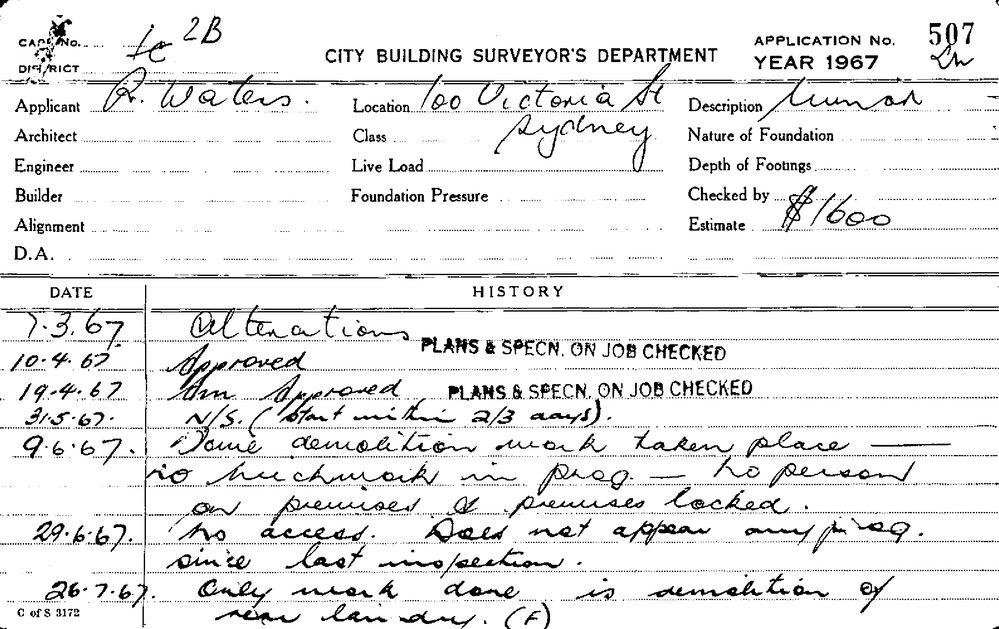 CARD No. 1c 2B
DISTRICT
CITY BUILDING SURVEYOR'S DEPARTMENT
APPLICATION No. 507
YEAR 1967
Applicant R. Waters. Location 100 Victoria St Description
Architect Class Sydney Nature of Foundation
Engineer Live Load Depth of Footings
Builder Foundation Pressure Checked by
Alignment Estimate $1600
D.A.
DATE HISTORY
7.3.67 Alterations
PLANS & SPECN. ON JOB CHECKED
10.4.67 Approved
19.4.67 Am Approved PLANS & SPECN. ON JOB CHECKED
31.5.67. N/S. (Start within 2/3 days).
9.6.67. Some demolition work taken place —
no in prog. — no person
on premises & premises locked.
29.6.67. No access. Does not appear any prog.
since last inspection.
26.7.67. Only work done is demolition of
C of S 3172 rear laundry. (F)